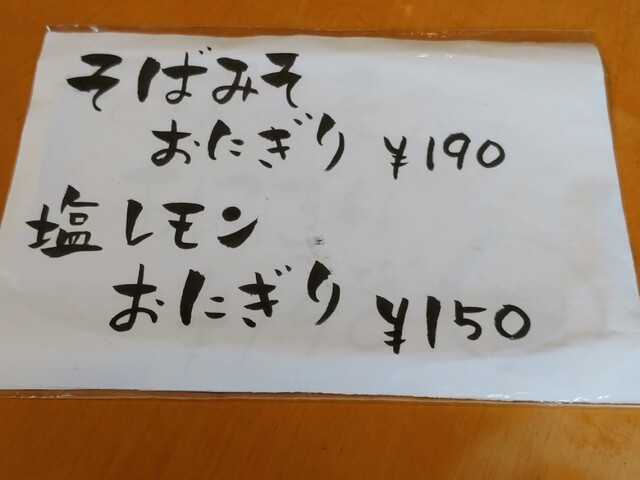 そばみそ
おにぎり ¥190
塩レモン
おにぎり ¥150